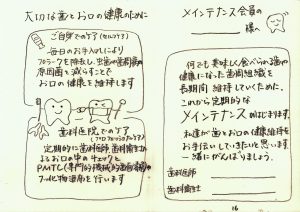 大切な歯とお口の健康のために
ご自身でのケア(セルフケア)
毎日のお手入れにより
プラークを除去し、虫歯や歯周病の
原因菌を減らすことで
お口の健康を維持します
歯科医院でのケア
(プロフェッショナルケア)
定期的に歯科医師 歯科衛生士に
よるお口の中のチェックと
PMTC(専門的機械的歯面清掃)や
フッ化物塗布を行います
メインテナンス会員の
様へ
何でも美味しく食べられる歯や
健康になった歯周組織を
長期間 維持していくために、
これから定期的な
メインテナンスが始まります。
私達が歯とお口の健康維持を
お手伝いしていきたいと思います
一緒にがんばりましょう。
歯科医師
歯科衛生士
16